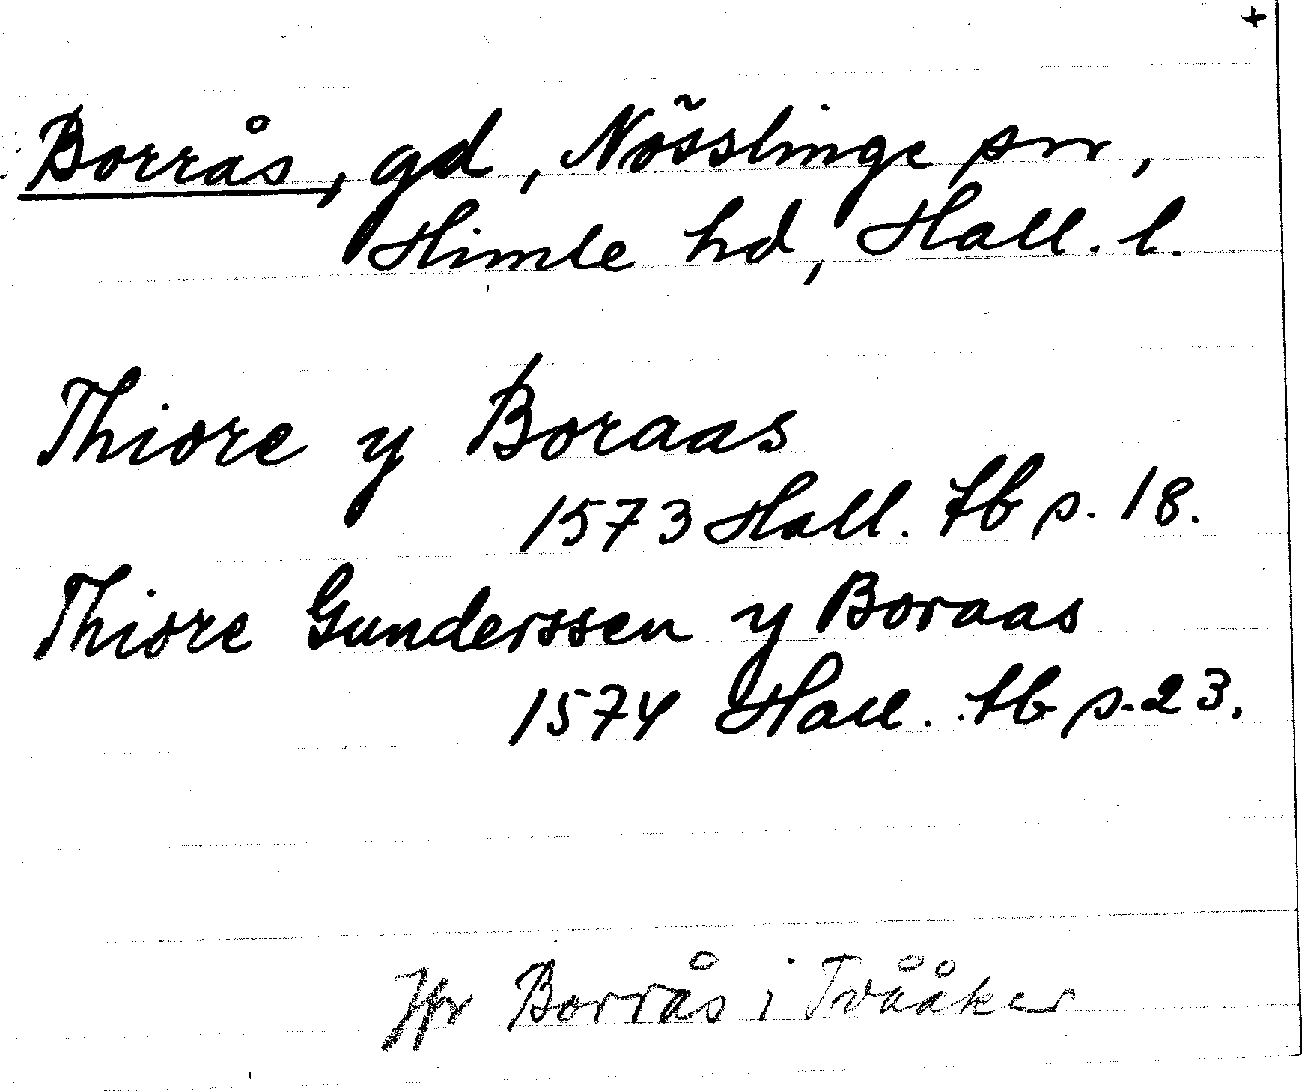 +
Borrås, gd, Nösslinge sn,
Himle hd, Hall. l.
Thiore y Boraas
1573 Hall. tb s. 18.
Thiore Gunderssen y Boraas
1574 Hall. tb s. 23.
Jfr Borrås i Tvååker